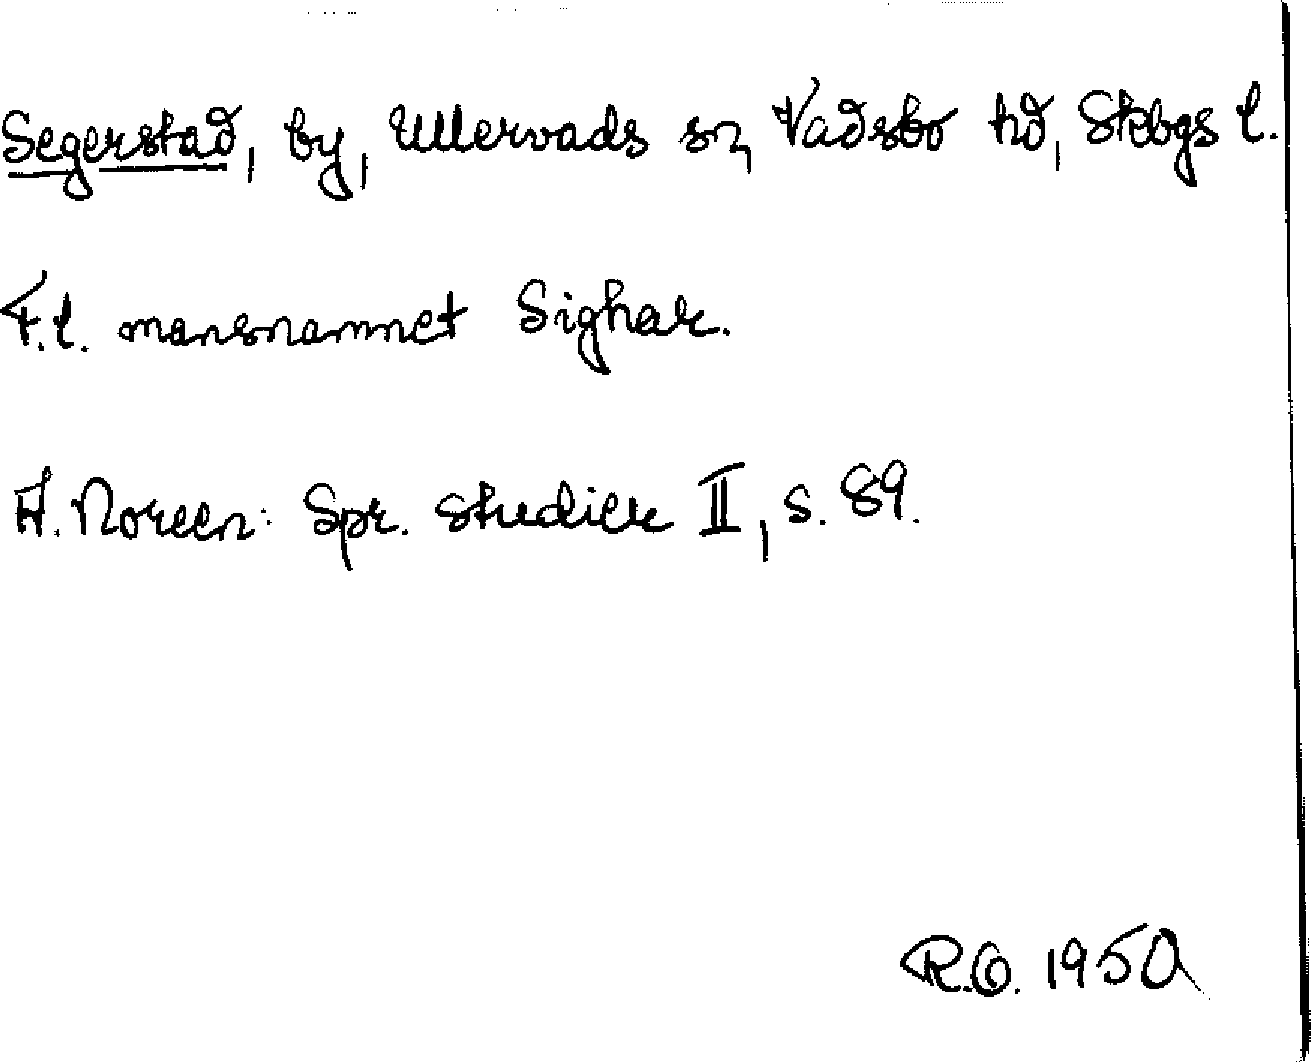 Segerstad, by, Ullervads sn, Vadsbo hd, Skbgs l.
F.l. mansnamnet Sighar.
A. Noreen: Spr. studier II, s. 89.
R.O. 1950